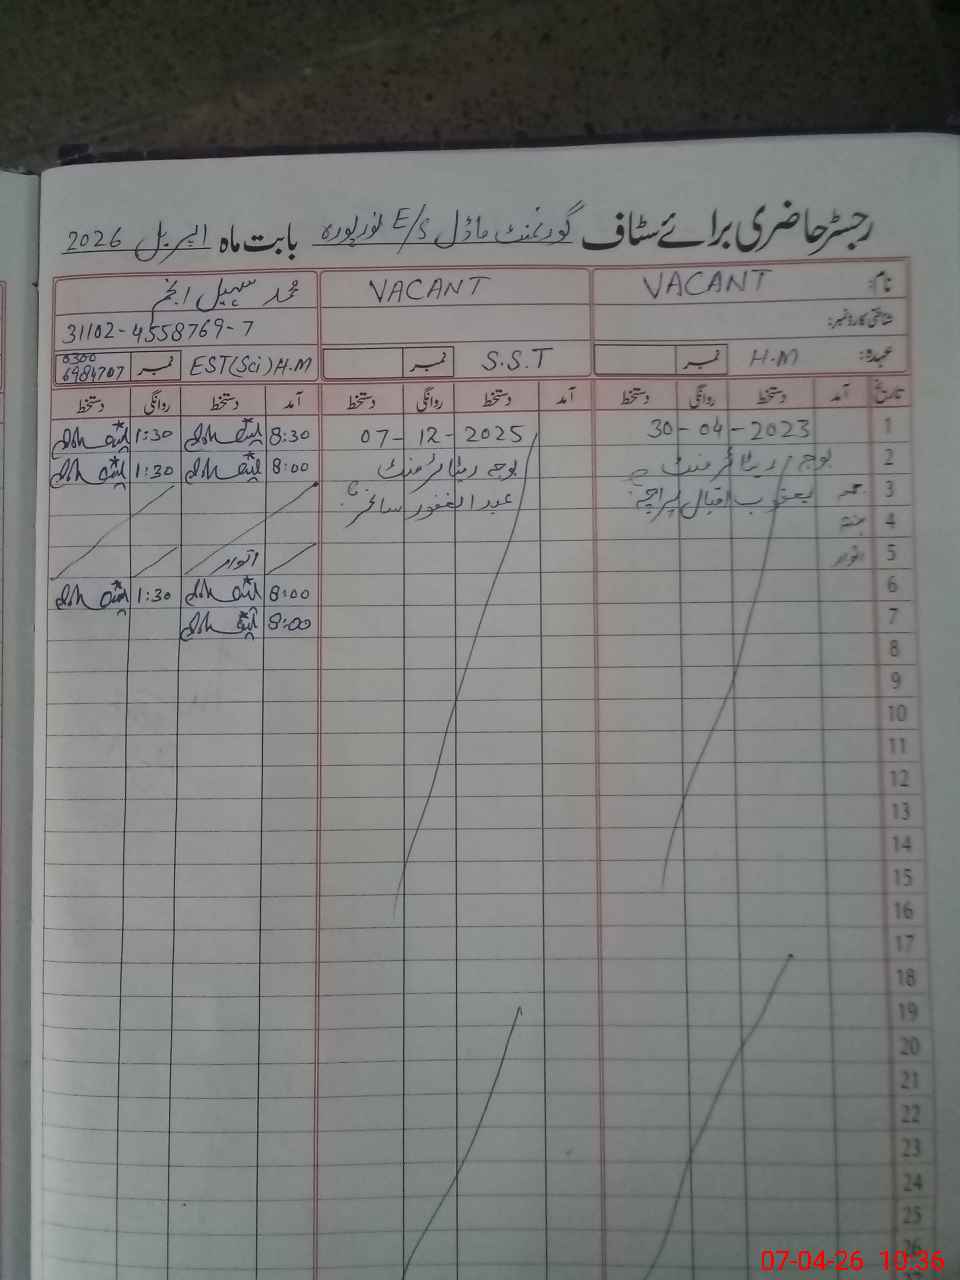 رجسٹر حاضری برائے سٹاف گورنمنٹ ماڈل E/S نورپورہ بابت ماہ اپریل 2026
نام: VACANT VACANT محمد سہیل انجم
شناختی کارڈ نمبر: 31102-4558769-7
عہدہ: H.M نمبر S.S.T نمبر EST(Sci) H.M نمبر 0300 6984707
تاریخ آمد دستخط روانگی دستخط آمد دستخط روانگی دستخط آمد دستخط روانگی دستخط
1 30-04-2023 07-12-2025 8:30 1:30
2 بوجہ ریٹائرمنٹ بوجہ ریٹائرمنٹ 8:00 1:30
3 جمعہ یعقوب اقبال پراچہ عبدالغفور ساغر
4 ہفتہ
5 اتوار اتوار
6 8:00 1:30
7 8:00
8
9
10
11
12
13
14
15
16
17
18
19
20
21
22
23
24
25
26
07-04-26 10:36